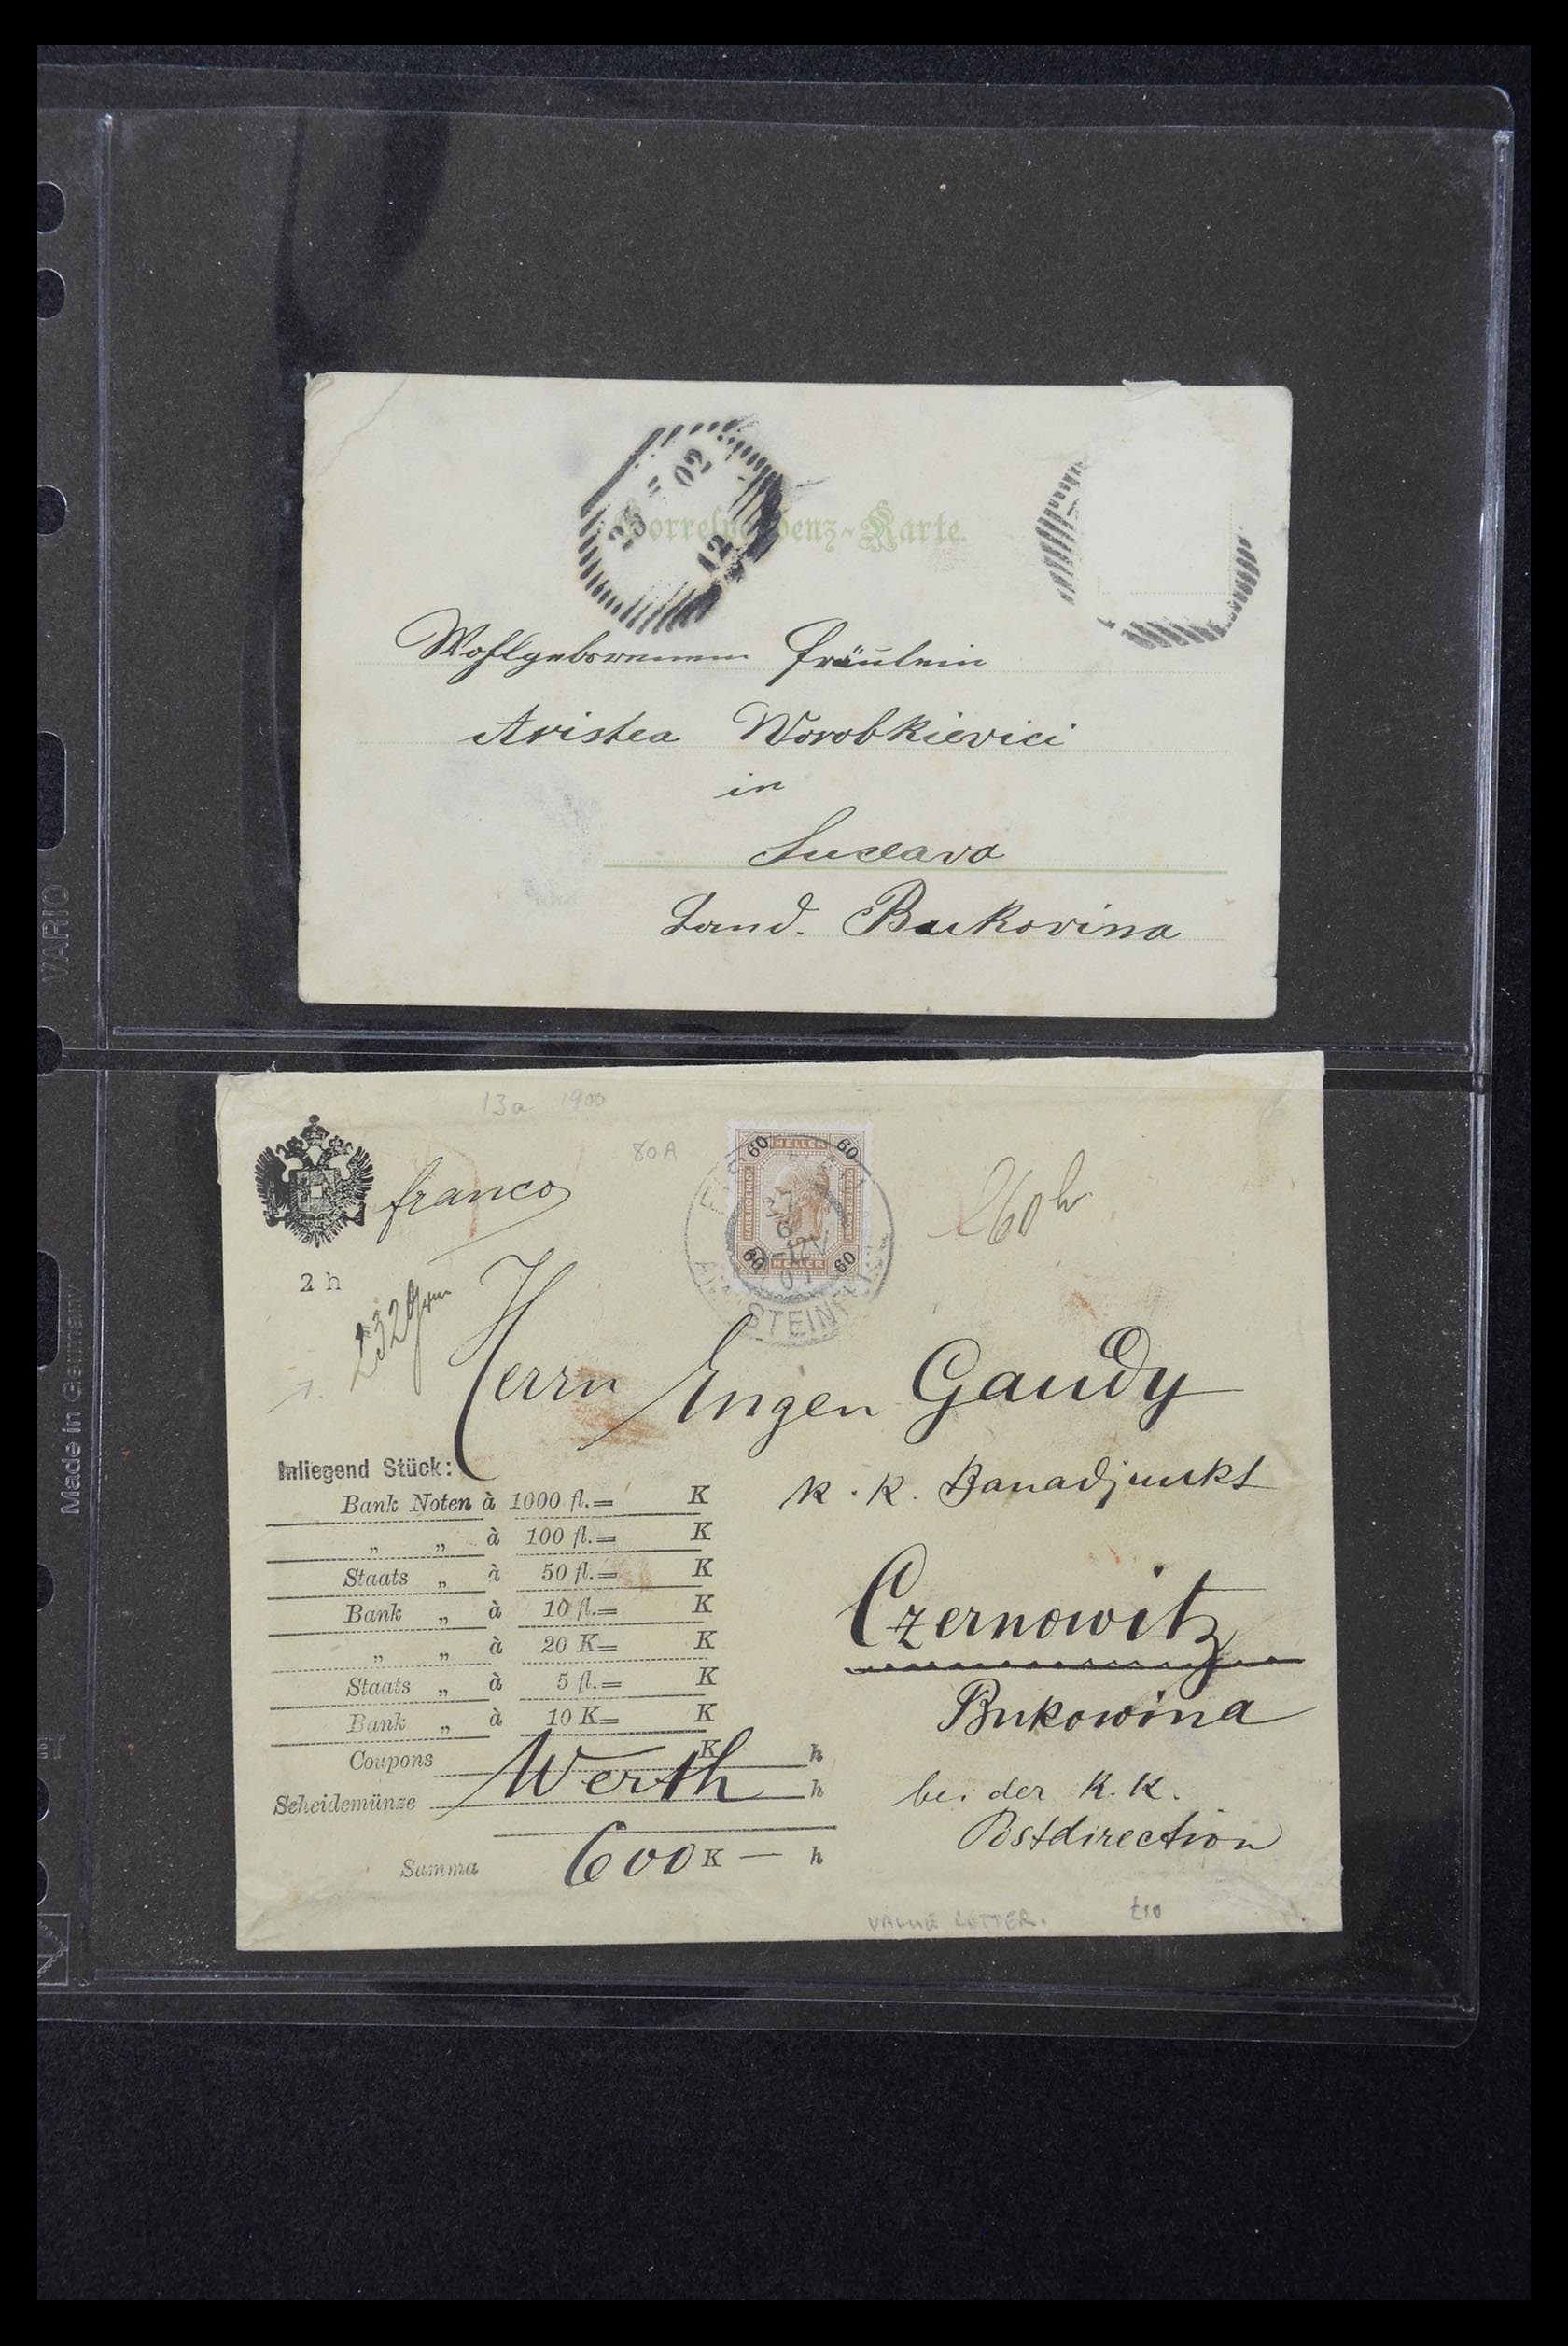 25 II 02
12
Correspondenz-Karte.
Wohlgeborenem Fräulein
Aristea Worobkievici
in
Suczava
Land. Bukovina
VARIO
Made in Germany
13a 1900
80A
franco
60 HELLER 60
60 HELLER 60
STEINF
260 h
2 h
232 Grm
Herrn Eugen Gaudy
Inliegend Stück:
k. k. Bauadjunkt
Bank Noten à 1000 fl.= K
„ „ à 100 fl.= K
Staats „ à 50 fl.= K
Bank „ à 10 fl.= K
„ „ à 20 K= K
Staats „ à 5 fl.= K
Bank „ à 10 K= K
Coupons K h
Scheidemünze h
Werth
Summa 600 K — h
Czernowitz
Bukowina
bei der k. k.
Postdirection
VALUE LETTER. £10